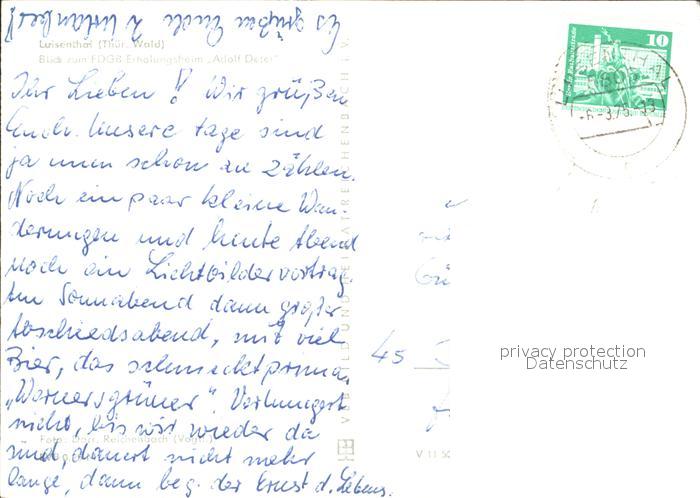 Luisenthal (Thür. Wald)
Blick zum FDGB Erholungsheim „Adolf Deter"
Ihr Lieben! Wir grüßen
Euch. Unsere Tage sind
ja nun schon zu zählen.
Noch ein paar kleine Wan-
derungen und heute Abend
noch ein Lichtbildervortrag.
Am Sonnabend dann großer
Abschiedsabend, mit viel
Bier, das schmeckt prima,
„Wernersgrüner". Verhungert
nicht, bis wir wieder da
sind, dauert nicht mehr
lange, dann beg. der Ernst d. Lebens.
Es grüßen Euch 2 Urlauber!
Foto: Darr, Reichenbach (Vogtl.)
VEB BILD UND HEIMAT REICHENBACH i. V.
V 11 50
10
-6.-3.75.-13
45
privacy protection
Datenschutz